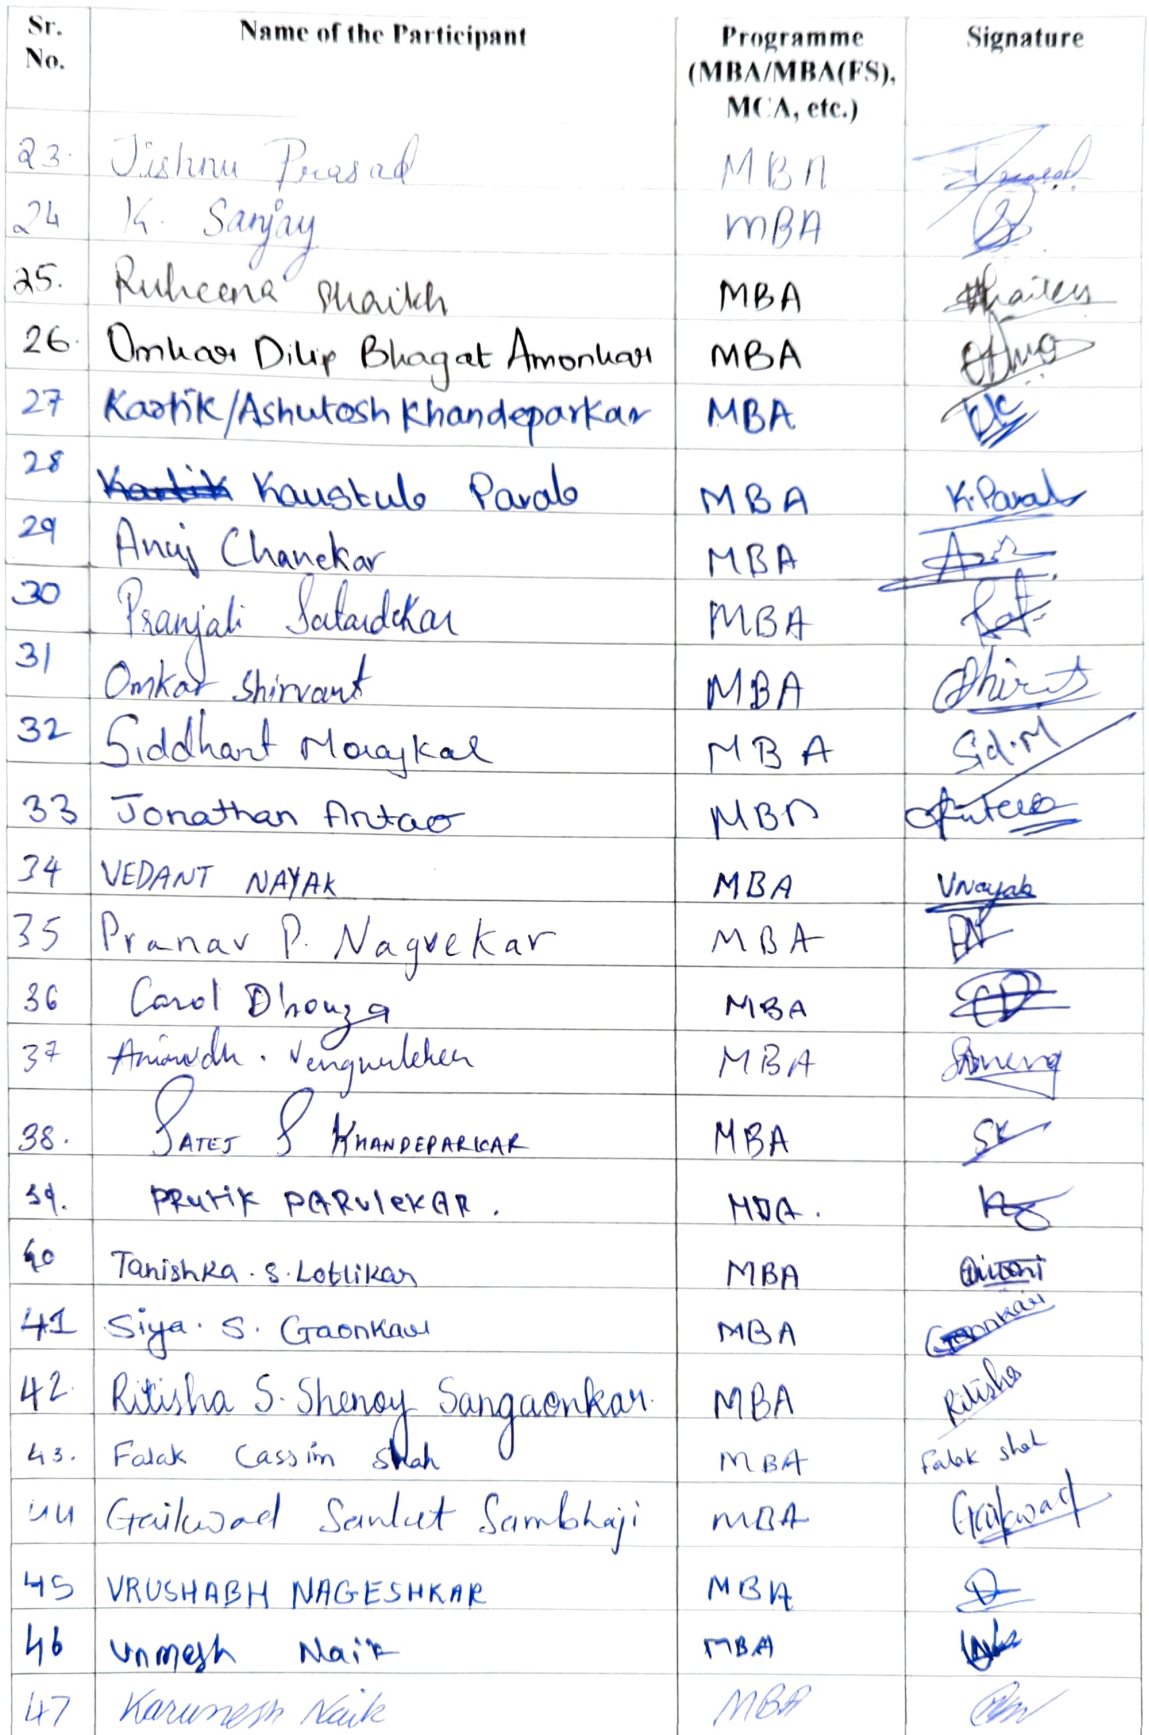 Sr. No. Name of the Participant Programme (MBA/MBA(FS), MCA, etc.) Signature
23. Jishnu Prasad MBA Prasad
24 K. Sanjay MBA
25. Ruheena Shaikh MBA
26. Omkar Dilip Bhagat Amonkar MBA
27 Kartik/Ashutosh Khandeparkar MBA KK
28 Kartik Kaustub Parab MBA K.Parab
29 Anuj Chanekar MBA
30 Pranjali Satardekar MBA
31 Omkar Shirvant MBA
32 Siddhant Morajkar MBA Sid.M
33 Jonathan Antao MBA
34 VEDANT NAYAK MBA VNayak
35 Pranav P. Nagvekar MBA PN
36 Carol Dhouza MBA CD
37 Anirudh. Vengurlekar MBA
38. SATEJ S KHANDEPARKAR MBA SK
39. PRUTIK PARULEKAR. MBA.
40 Tanishka.S.Lotlikar MBA
41 Siya. S. Gaonkar MBA Gaonkar
42. Ritisha S. Shenoy Sangaonkar. MBA Ritisha
43. Falak Cassim Shah MBA Falak Shah
44 Gaikwad Sanket Sambhaji MBA Gaikwad
45 VRUSHABH NAGESHKAR MBA
46 Unmesh Naik MBA
47 Karunesh Naik MBA